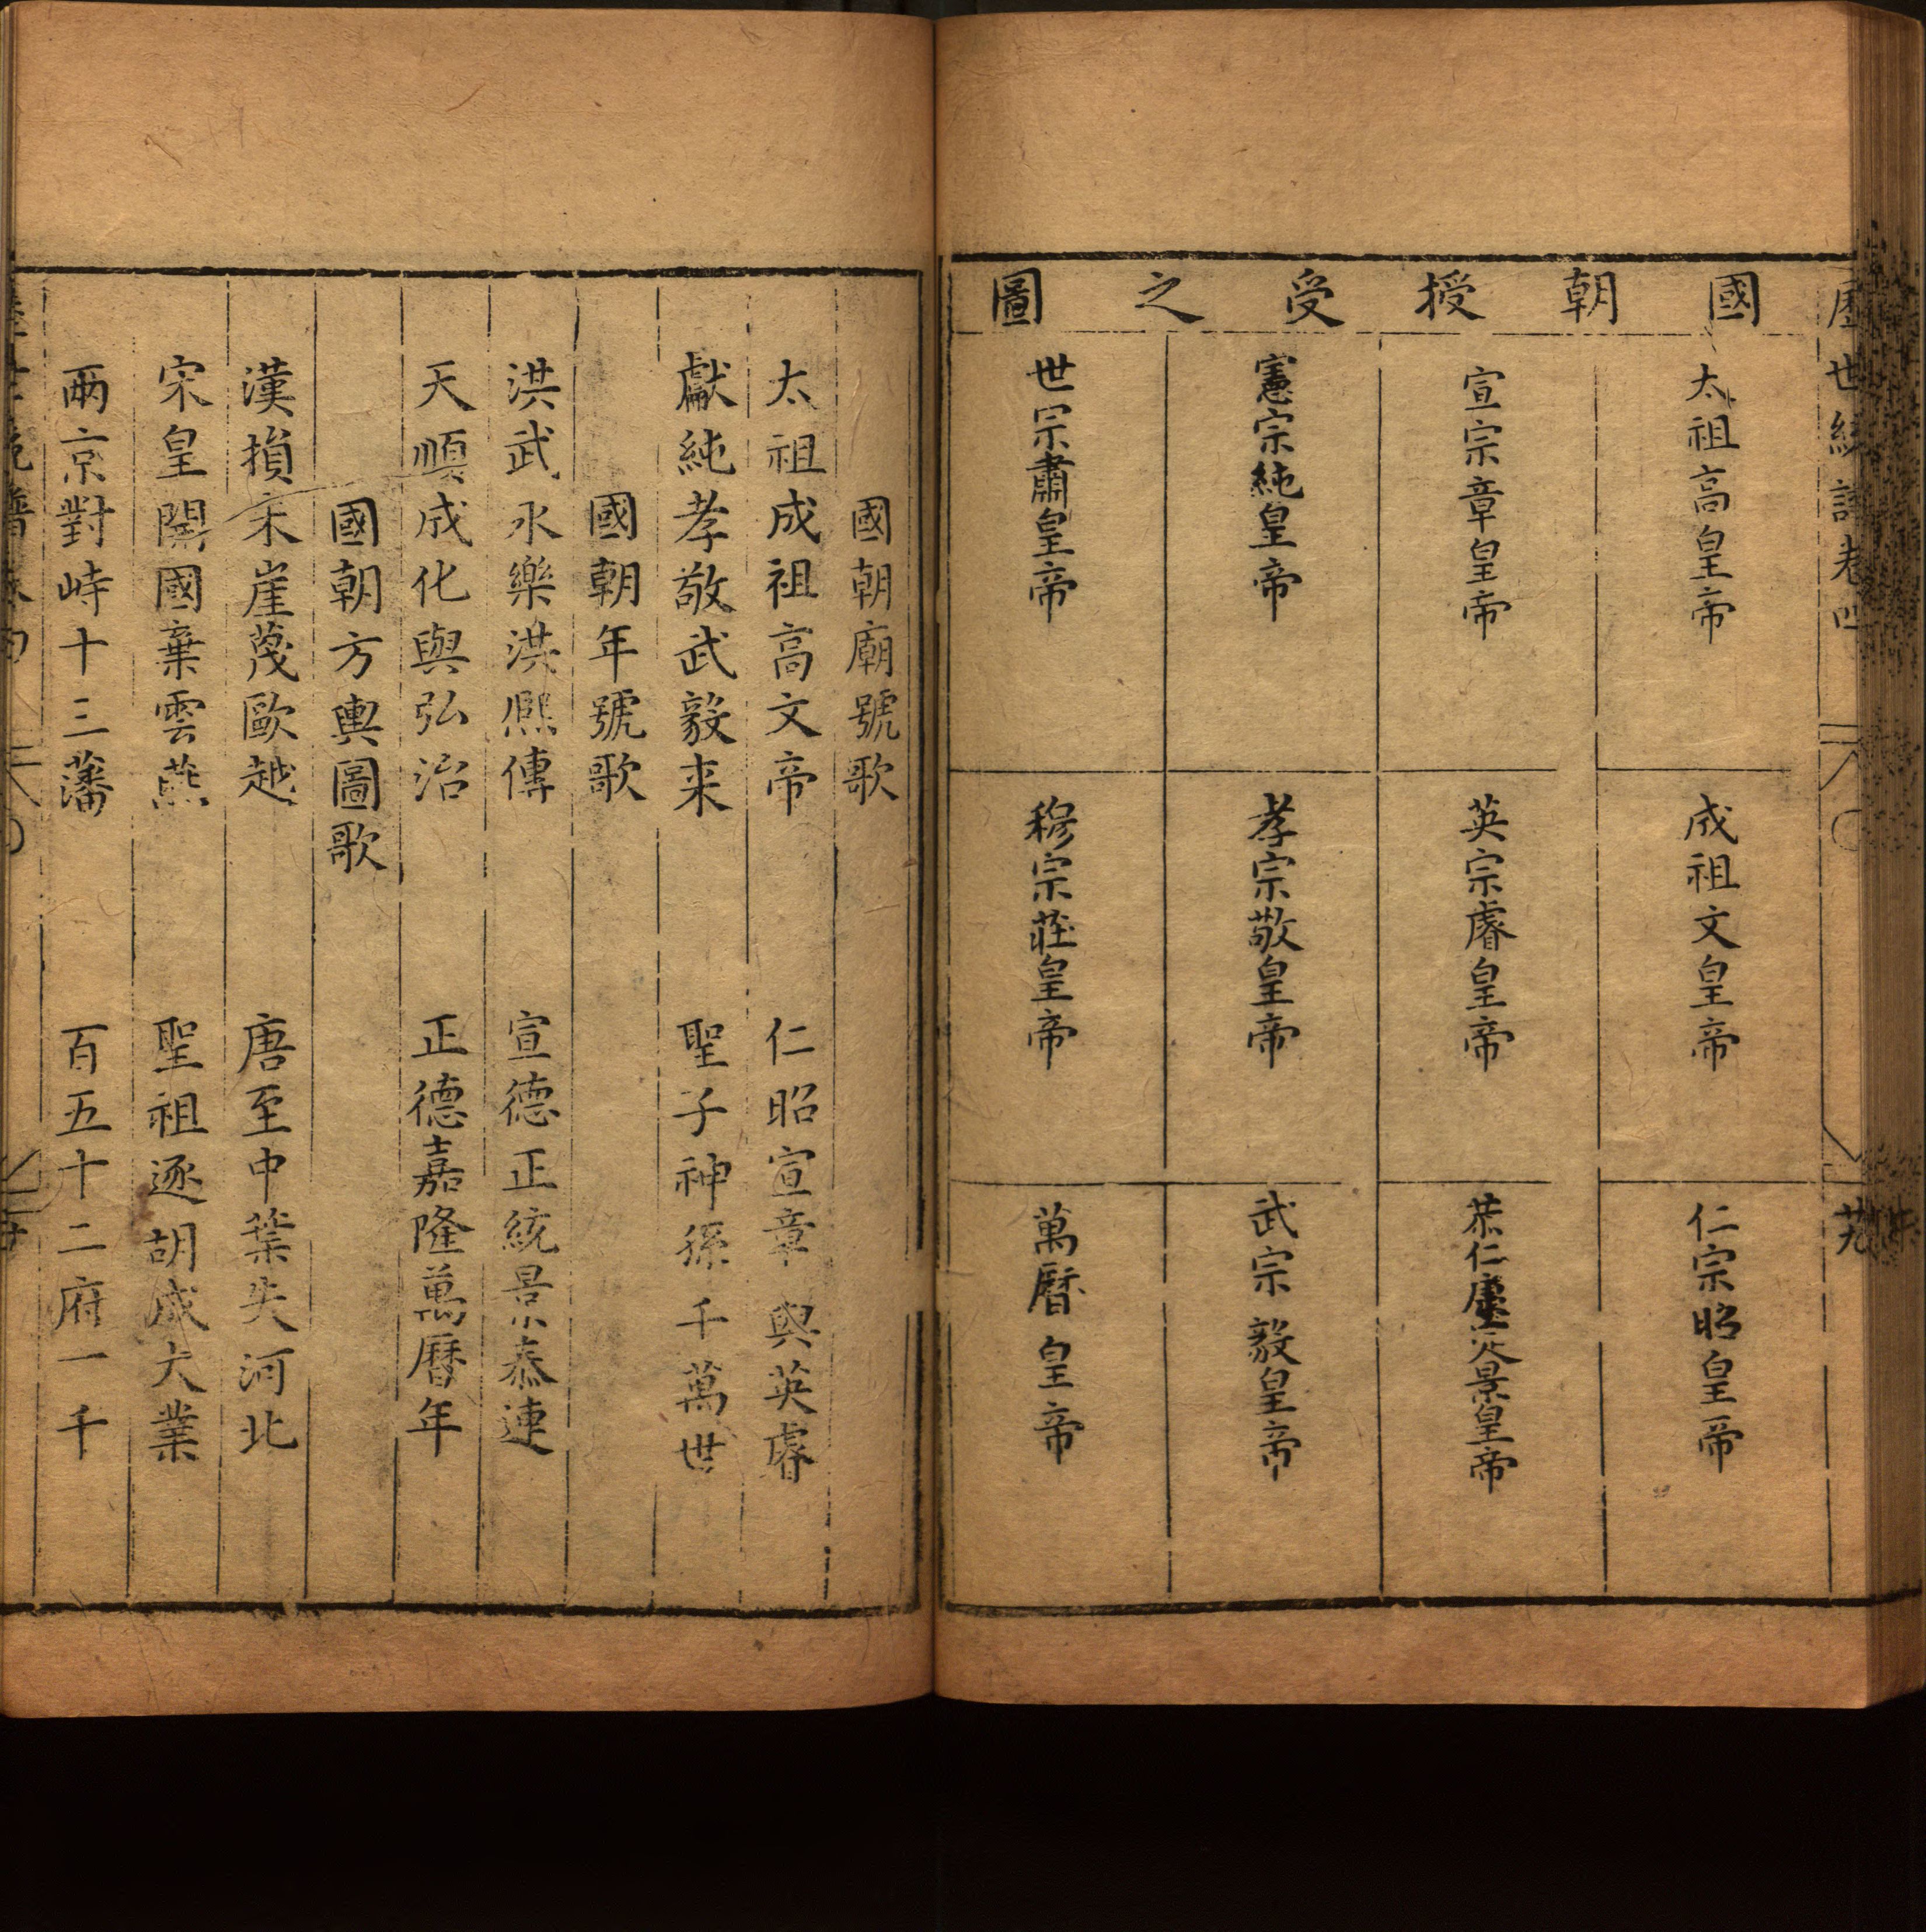 國朝授受之圖
太祖高皇帝
成祖文皇帝
仁宗昭皇帝
宣宗章皇帝
英宗睿皇帝
恭仁康定景皇帝
憲宗純皇帝
孝宗敬皇帝
武宗毅皇帝
世宗肅皇帝
穆宗莊皇帝
萬曆皇帝
國朝廟號歌
太祖成祖高文帝 仁昭宣章與英睿
獻純孝敬武毅来 聖子神孫千萬世
國朝年號歌
洪武永樂洪熙傳 宣德正統景泰連
天順成化與弘治 正德嘉隆萬曆年
國朝方輿圖歌
漢損朱崖蔑歐越 唐至中葉失河北
宋皇開國棄雲燕 聖祖逐胡成大業
兩京對峙十三藩 百五十二府一千